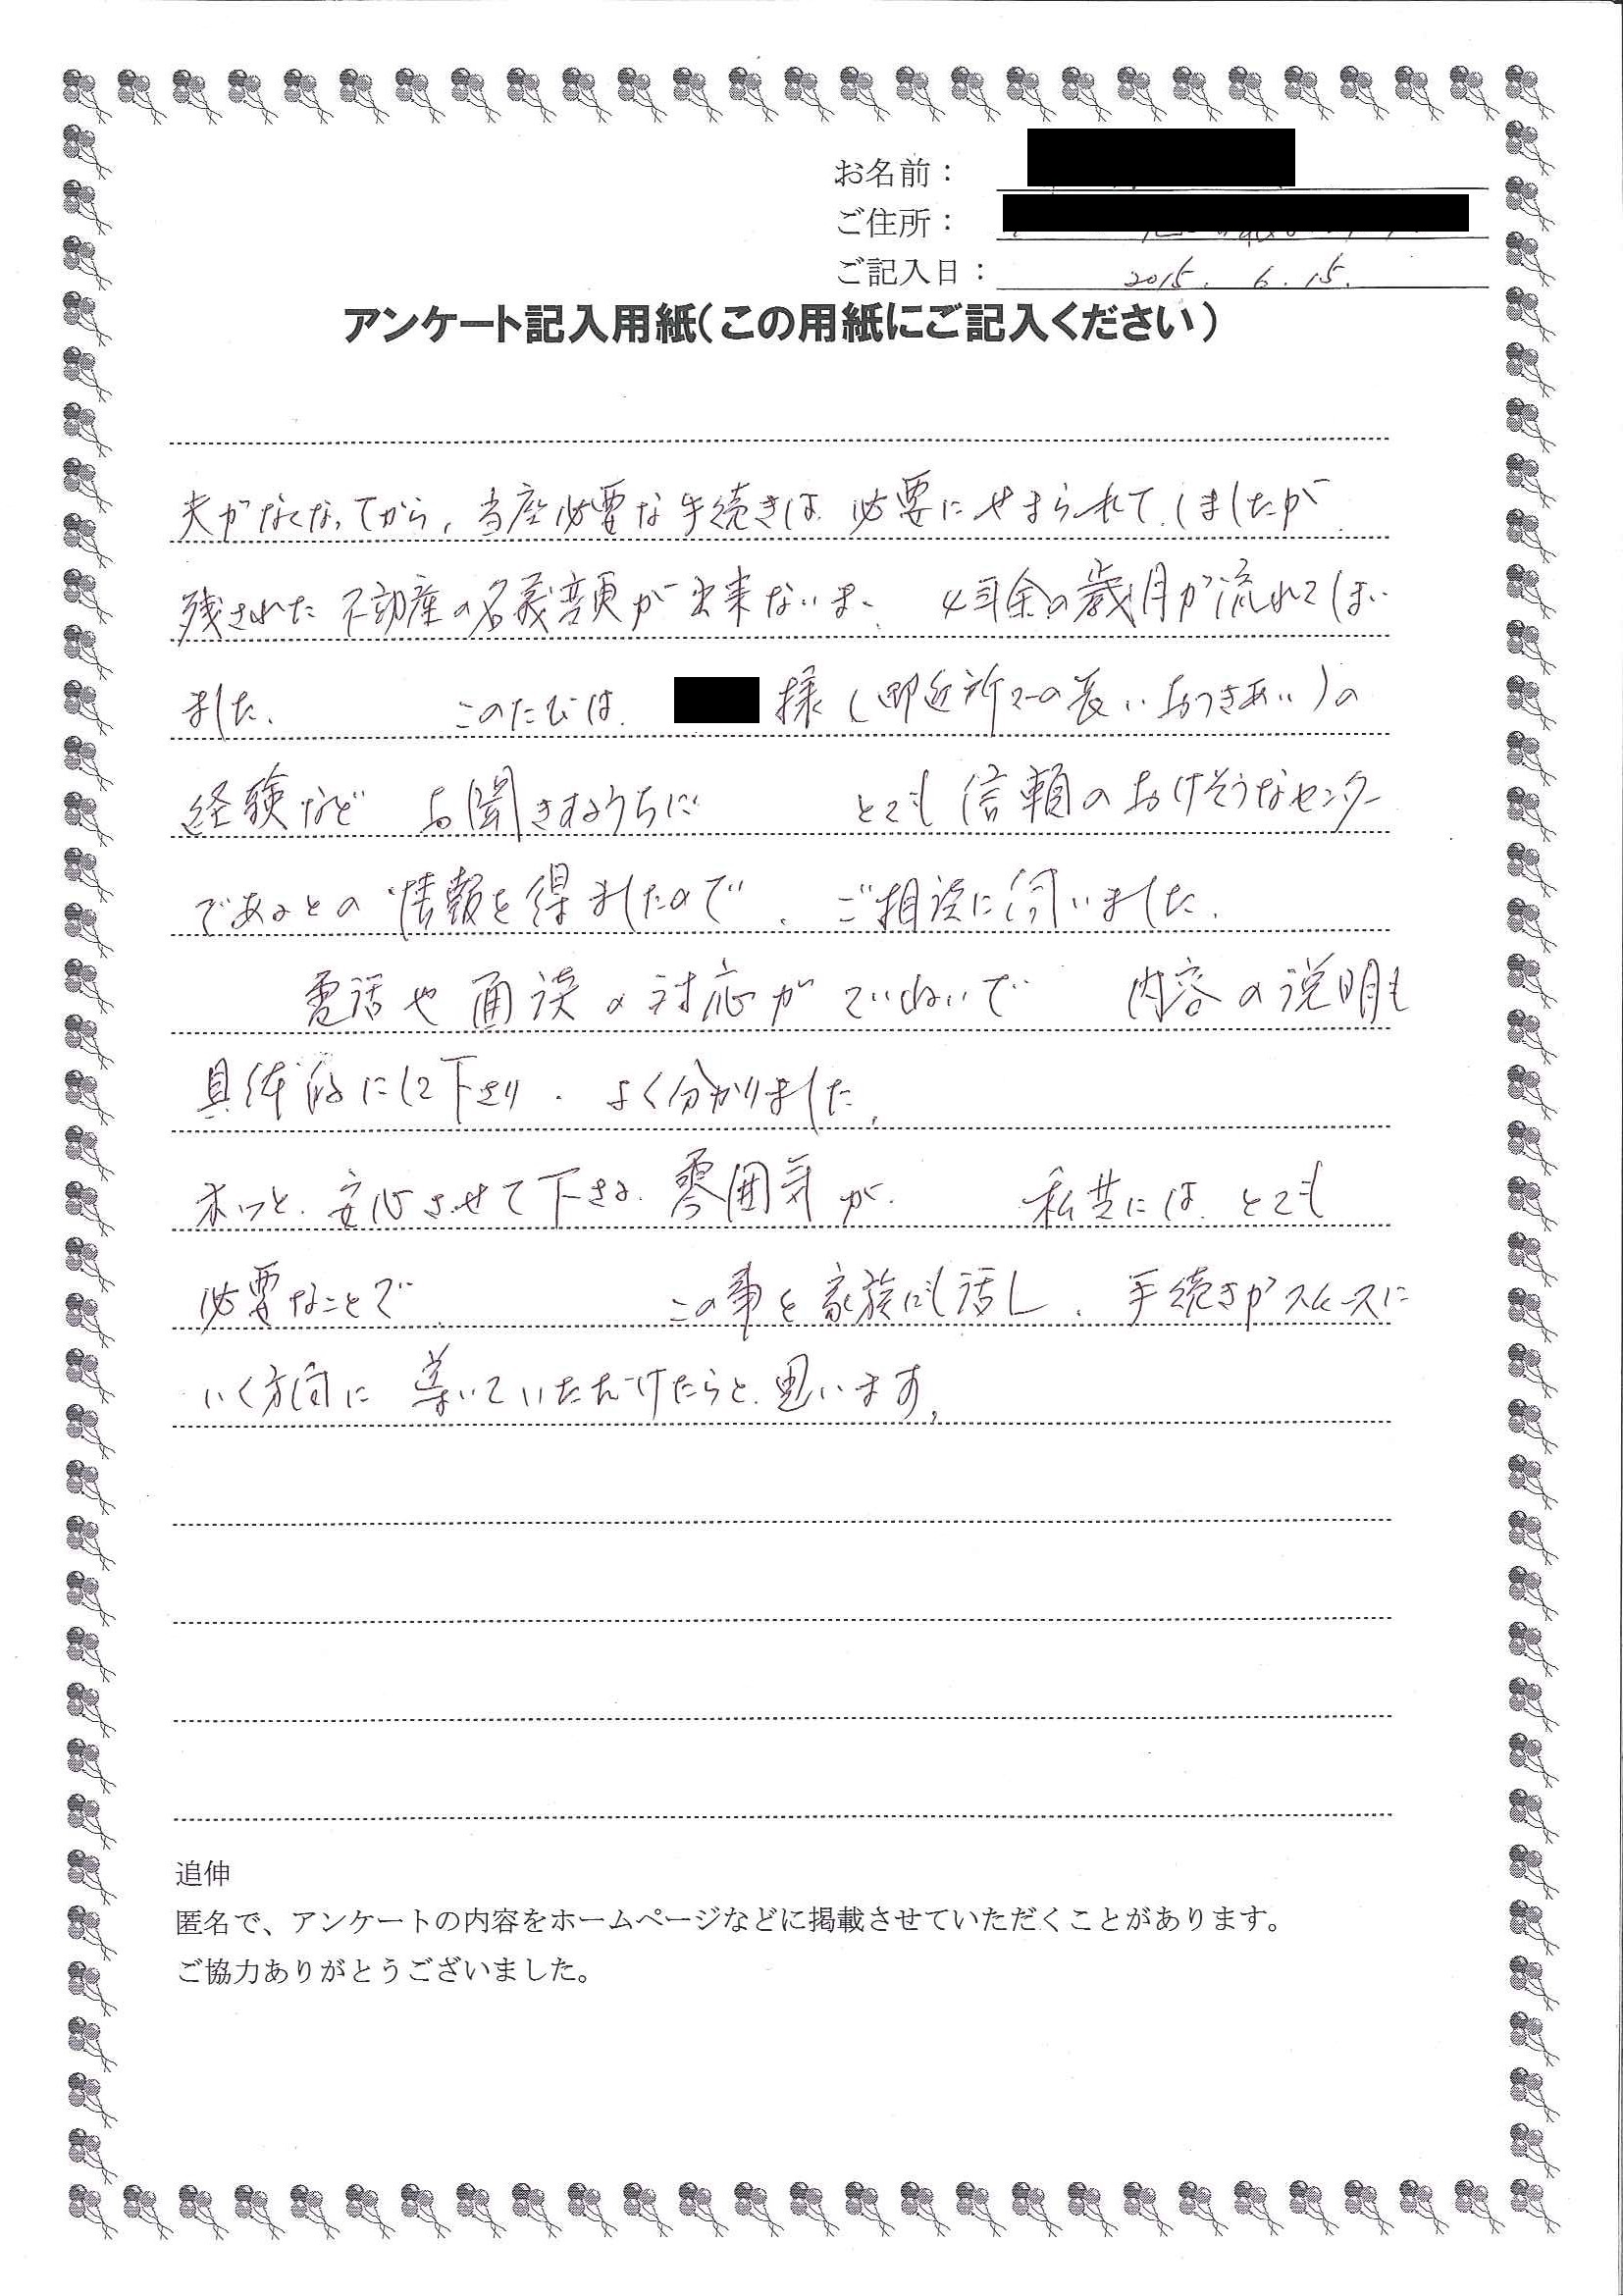 お名前：
ご住所：
ご記入日： 2015. 6. 15.
アンケート記入用紙（この用紙にご記入ください）
夫がなくなってから、当座必要な手続きは 必要にせまられて、しましたが、
残された 不動産の名義変更が 出来ないまゝ 4年余の歳月が流れてしまい
ました。 このたびは、 様（御近所での長いおつきあい）の
経験など お聞きするうちに とても信頼のおけそうなセンター
であるとの情報を得ましたので、ご相談に伺いました。
電話や面談の対応がていねいで 内容の説明も
具体的にして下さり、よく分かりました。
ホッと、安心させて下さる、雰囲気が、 私共には、とても
必要なことで、 この事を家族にも話し、手続きがスムースに
いく方向に 導いていただけたらと、思います。
追伸
匿名で、アンケートの内容をホームページなどに掲載させていただくことがあります。
ご協力ありがとうございました。